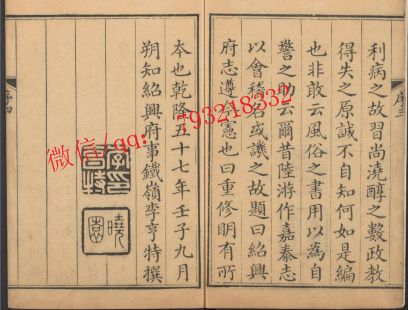 利病之故習尚澆醇之數政教
得失之原誠不自知何如是編
也非敢云風俗之書用以為自
警之助云爾昔陸游作嘉泰志
以會稽名或譏之故題曰紹興
府志遵今憲也曰重修明有所
本也乾隆五十七年壬子九月
朔知紹興府事鐵嶺李亨特撰
李亨特印
曉園
微信/qq: 793218332